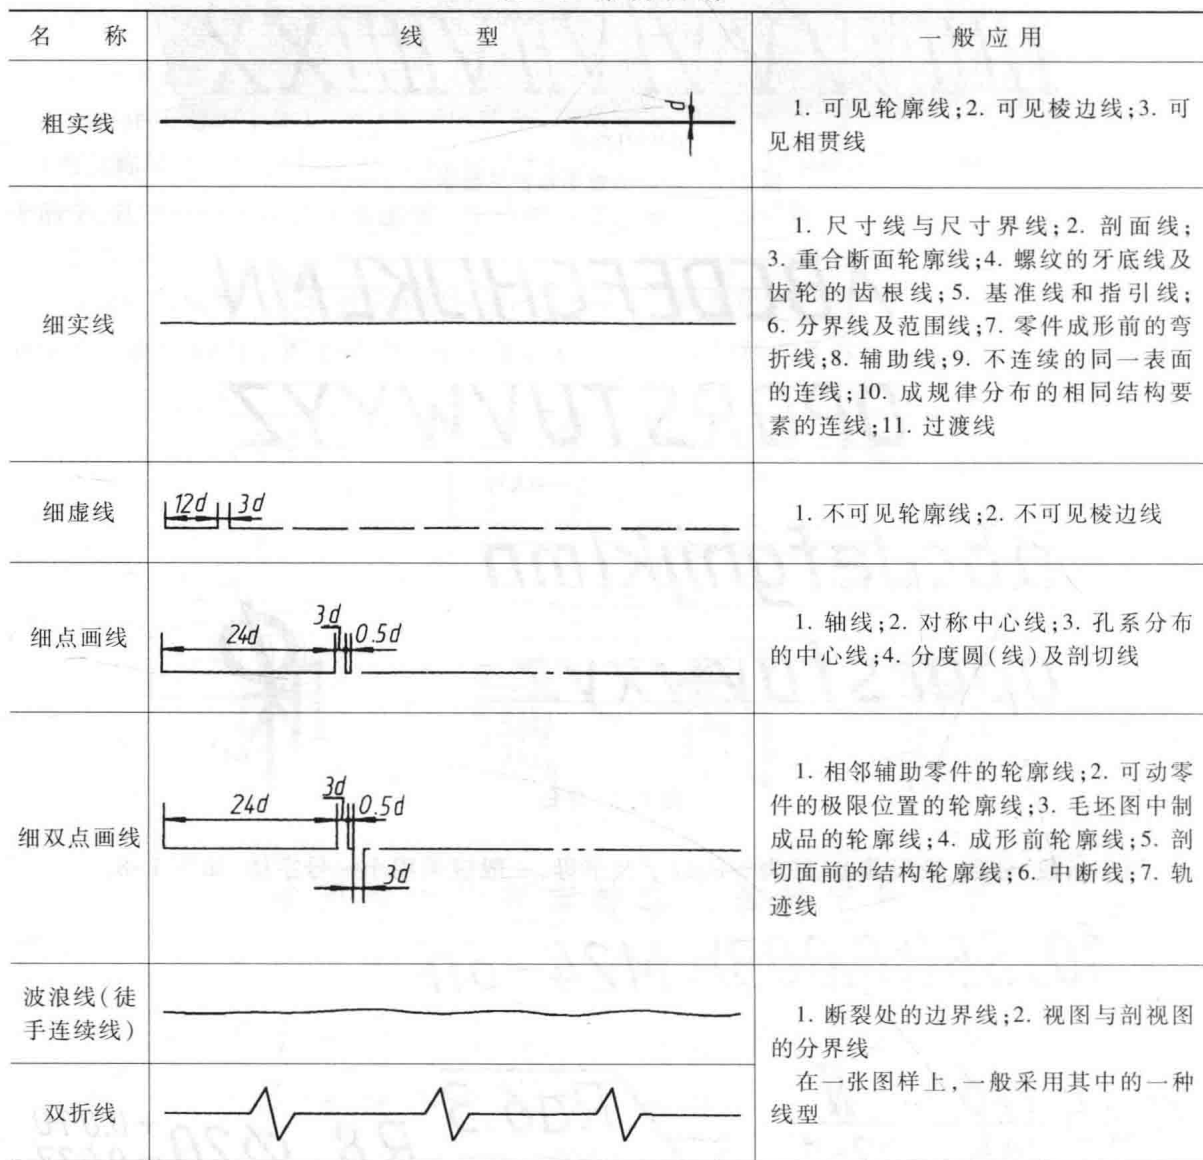 名 称
线 型
一般应用
粗实线
d
1. 可见轮廓线;2. 可见棱边线;3. 可
见相贯线
细实线
1. 尺寸线与尺寸界线;2. 剖面线;
3. 重合断面轮廓线;4. 螺纹的牙底线及
齿轮的齿根线;5. 基准线和指引线;
6. 分界线及范围线;7. 零件成形前的弯
折线;8. 辅助线;9. 不连续的同一表面
的连线;10. 成规律分布的相同结构要
素的连线;11. 过渡线
细虚线
12d 3d
1. 不可见轮廓线;2. 不可见棱边线
细点画线
24d 3d 0.5d
1. 轴线;2. 对称中心线;3. 孔系分布
的中心线;4. 分度圆(线)及剖切线
细双点画线
24d 3d 0.5d
3d
1. 相邻辅助零件的轮廓线;2. 可动零
件的极限位置的轮廓线;3. 毛坯图中制
成品的轮廓线;4. 成形前轮廓线;5. 剖
切面前的结构轮廓线;6. 中断线;7. 轨
迹线
波浪线(徒
手连续线)
双折线
1. 断裂处的边界线;2. 视图与剖视图
的分界线
在一张图样上,一般采用其中的一种
线型